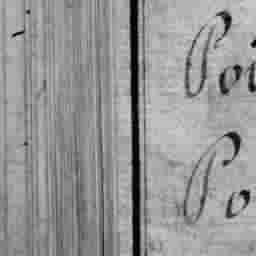 Poi
Po